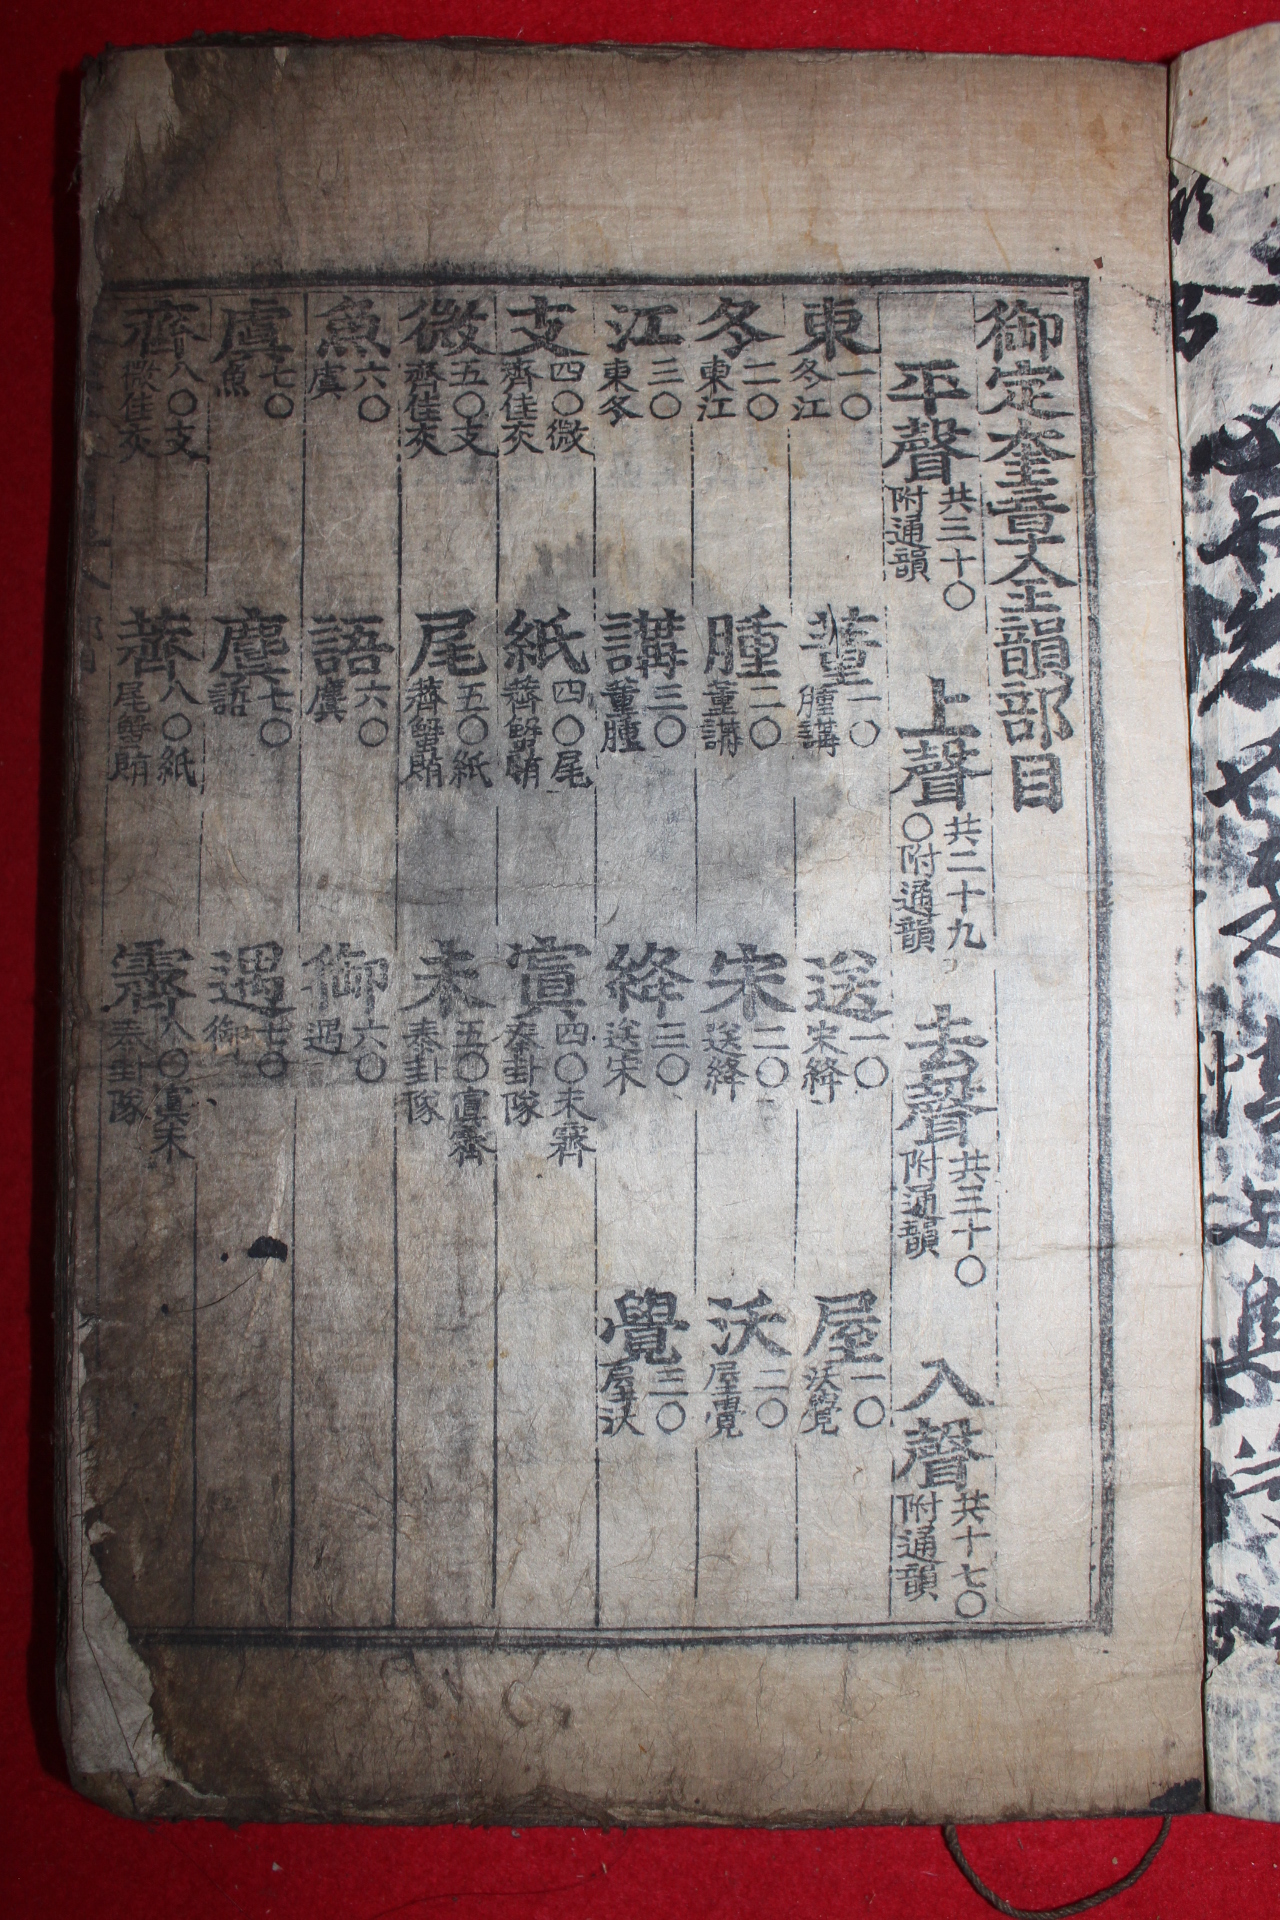 御定奎章全韻部目
平聲 共三十○附通韻 上聲 共二十九○附通韻 去聲 共三十○附通韻 入聲 共十七○附通韻
東 一○冬江 董 一○腫講 送 一○宋絳 屋 一○沃覺
冬 二○東江 腫 二○董講 宋 二○送絳 沃 二○屋覺
江 三○東冬 講 三○董腫 絳 三○送宋 覺 三○屋沃
支 四○微齊佳灰 紙 四○尾薺蟹賄 寘 四○未霽泰卦隊
微 五○支齊佳灰 尾 五○紙薺蟹賄 未 五○寘霽泰卦隊
魚 六○虞 語 六○麌 御 六○遇
虞 七○魚 麌 七○語 遇 七○御
齊 八○支微佳灰 薺 八○紙尾蟹賄 霽 八○寘未泰卦隊